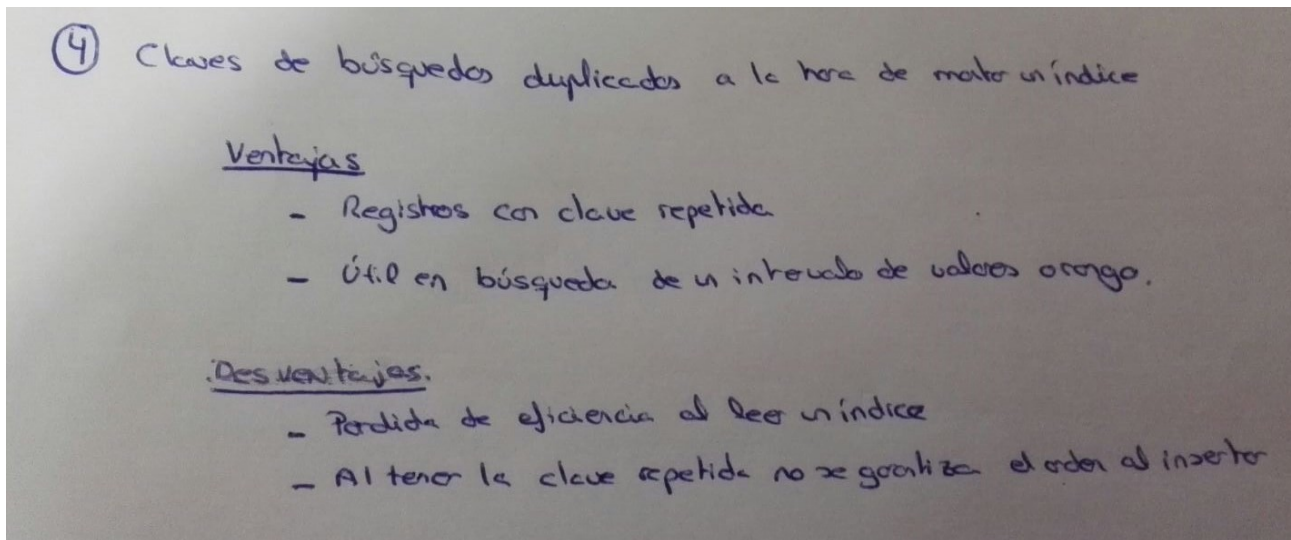 4 Claves de búsquedas duplicadas a la hora de montar un índice
Ventajas
- Registros con clave repetida
- Útil en búsqueda de un intervalo de valores o rango.
Desventajas.
- Perdida de eficiencia al leer un índice
- Al tener la clave repetida no se garantiza el orden al insertar